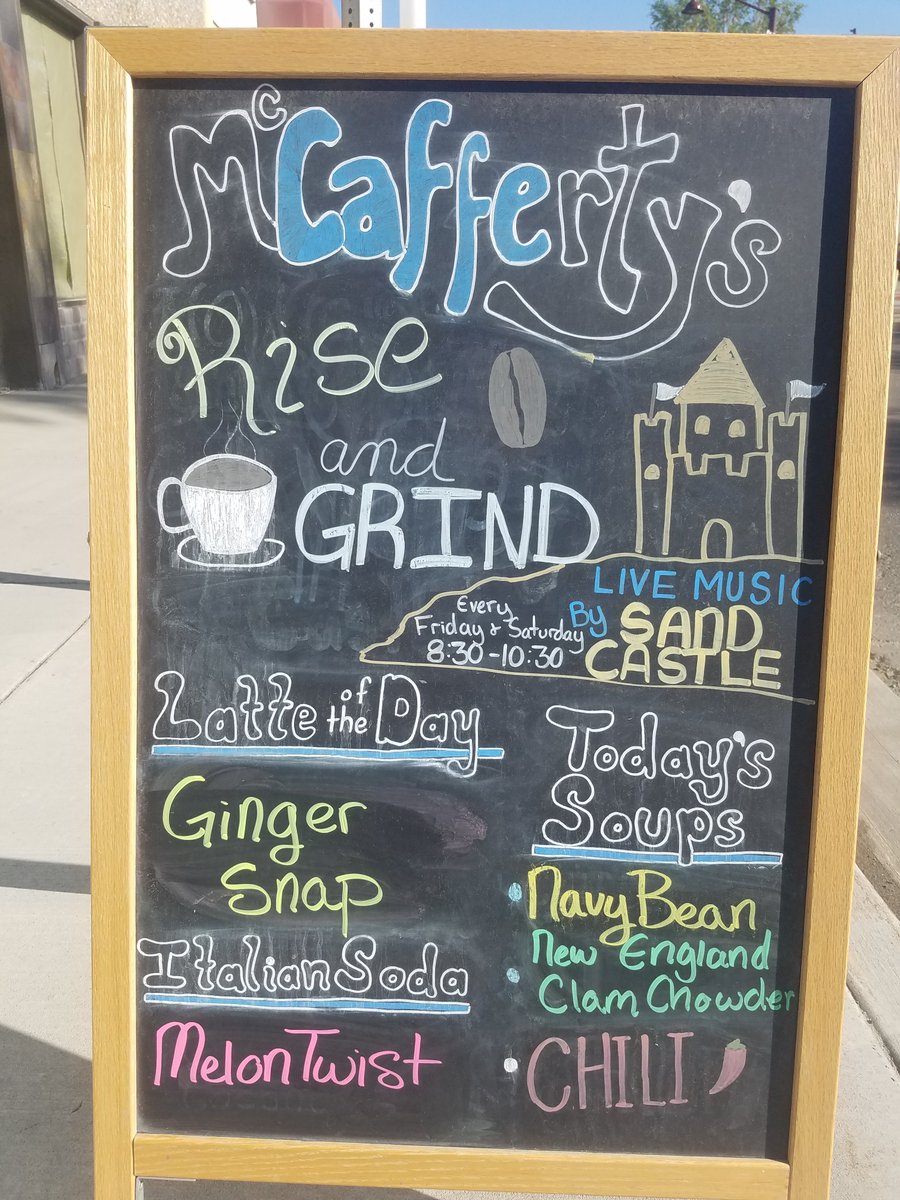 McCafferty's
Rise
and
GRIND
LIVE MUSIC
By SAND
CASTLE
Every
Friday & Saturday
8:30-10:30
Latte of the Day
Ginger
Snap
Italian Soda
Melon Twist
Today's
Soups
Navy Bean
New England
Clam Chowder
CHILI